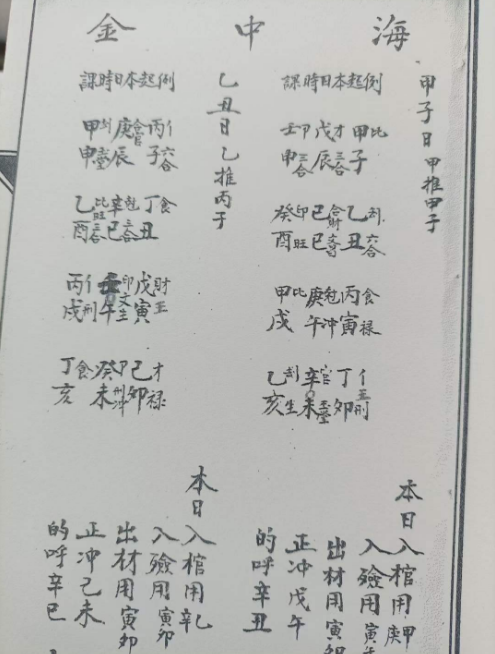 海中金
甲子日甲推甲子
課時日本起例
壬卩戊才甲比
申三合辰三合子
癸卩己財乙劫
酉旺巳丑六合
甲比庚丙食
戌午冲寅禄
乙劫辛官丁
亥生未卯刑
本日入棺用庚甲
入殮用寅
出材用寅
正冲戊午
的呼辛丑
乙丑日乙推丙子
課時日本起例
甲庚官丙
申辰子六合
乙比辛丁食
酉三合巳三合丑
丙卩戊財
戌刑午生寅
丁食癸卩己才
亥未刑冲卯禄
本日入棺用辛乙
入殮用寅卯
出材用寅卯
正冲己未
的呼辛巳